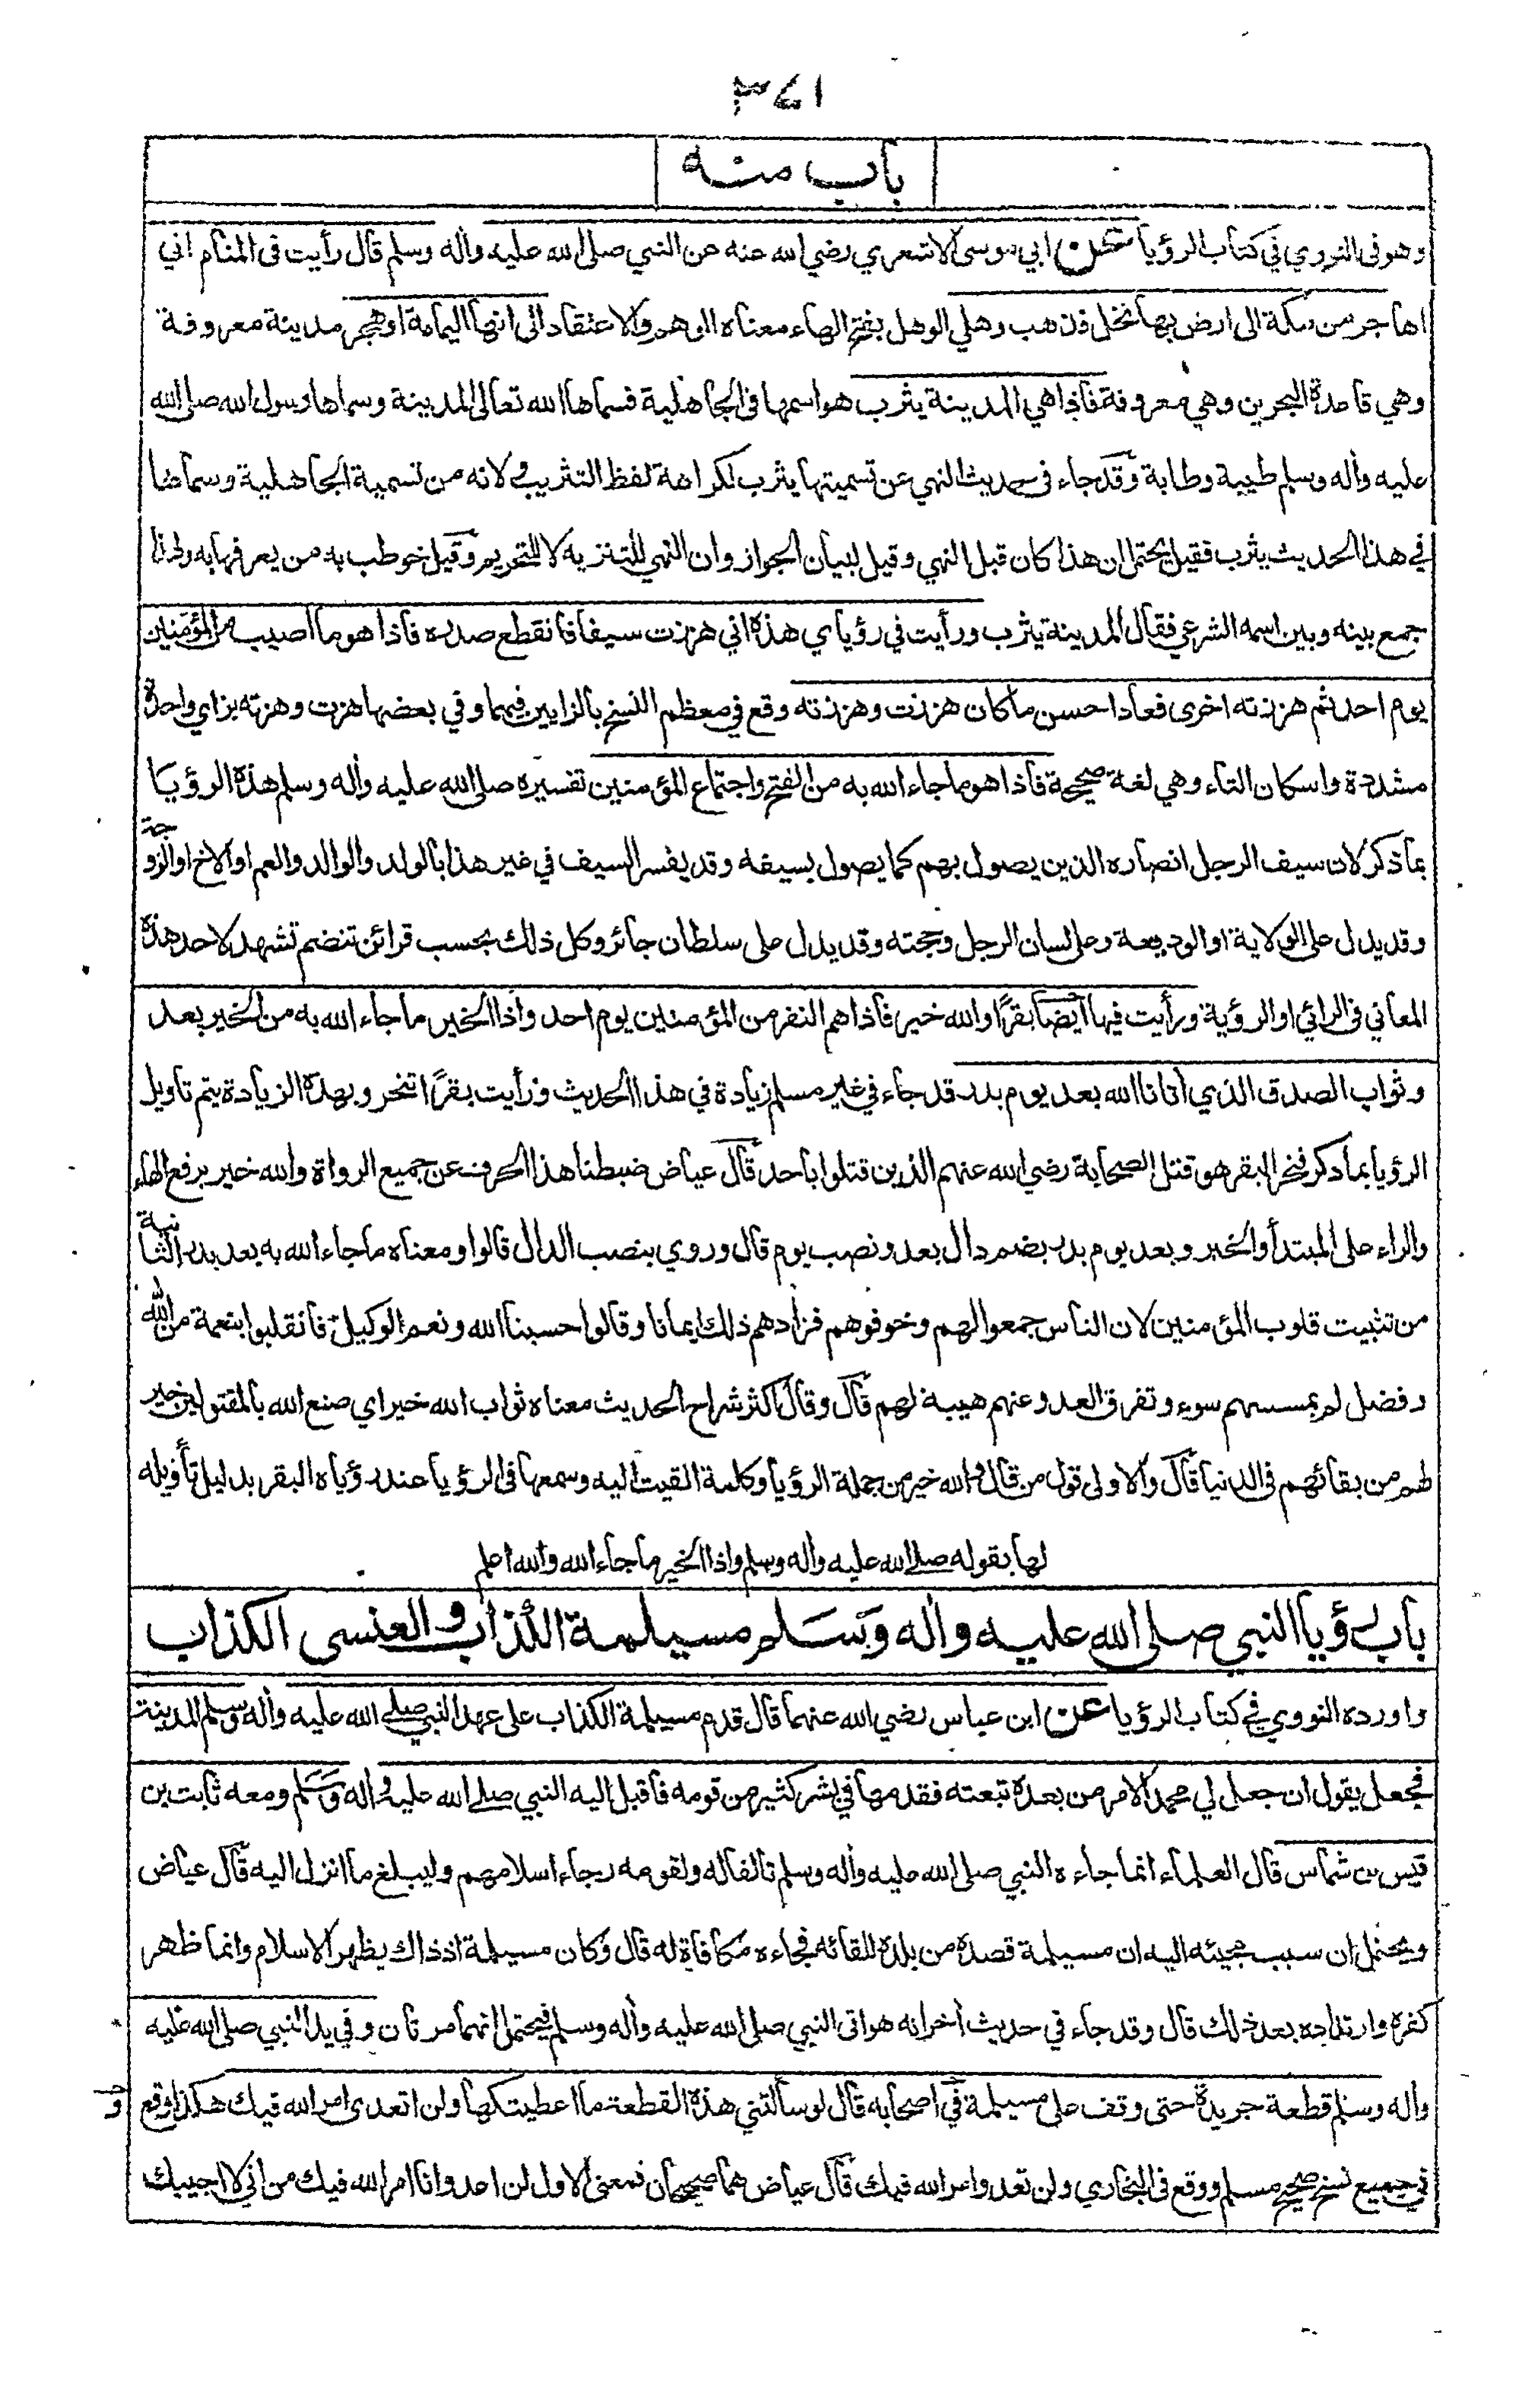 ٣٤١
باب منه
وهو في النووي في كتاب الرؤيا عن ابي موسى الاشعري رضي الله عنه عن النبي صلى الله عليه وأله وسلم قال رأيت في المنام اني
اهاجر من مكة الى ارض بها نخل فذهب وهلي الوهل بفتح الهاء معناه الوهم والاعتقاد الى انها اليمامة او هجر مدينة معروفة
وهي قاعدة البحرين وهي معروفة فاذا هي المدينة يثرب هو اسمها في الجاهلية فسماها الله تعالى المدينة وسماها رسول الله صلى الله
عليه وأله وسلم طيبة وطابة وقد جاء في حديث النهي عن تسميتها يثرب لكراهة لفظ التثريب ولانه من تسمية الجاهلية وسماها
في هذا الحديث يثرب فقيل يحتمل ان هذا كان قبل النهي وقيل لبيان الجواز وان النهي للتنزيه لا للتحريم وقيل خوطب به من يعرفها به ولهذا
جمع بينه وبين اسمه الشرعي فقال المدينة يثرب ورأيت في رؤياي هذه اني هززت سيفا فانقطع صدره فاذا هو ما اصيب من المؤمنين
يوم احد ثم هززته اخرى فعاد احسن ما كان هززت وهززته وقع في معظم النسخ بالزايين فيهما وفي بعضها هزت وهزته بزاي واحدة
مشددة واسكان التاء وهي لغة صحيحة فاذا هو ما جاء الله به من الفتح واجتماع المؤمنين تفسيره صلى الله عليه وأله وسلم هذه الرؤيا
بما ذكر لان سيف الرجل انصاره الذين يصول بهم كما يصول بسيفه وقد يفسر السيف في غير هذا بالولد والوالد والعم او الاخ او الزوجة
وقد يدل على الولاية او الوديعة وعلى لسان الرجل وحجته وقد يدل على سلطان جائر وكل ذلك بحسب قرائن تنضم تشهد لاحد هذه
المعاني في الرائي او الرؤية ورأيت فيها ايضا بقرًا والله خير فاذا هم النفر من المؤمنين يوم احد واذا الخير ما جاء الله به من الخير بعد
وثواب الصدق الذي اتانا الله بعد يوم بدر قد جاء في غير مسلم زيادة في هذا الحديث ورأيت بقرًا تنحر وبهذه الزيادة يتم تاويل
الرؤيا بما ذكر فنحر البقر هو قتل الصحابة رضي الله عنهم الذين قتلوا باحد قال عياض ضبطنا هذا الحرف عن جميع الرواة والله خير برفع الهاء
والراء على المبتدأ والخبر وبعد يوم بدر بضم دال بعد ونصب يوم قال وروي بنصب الدال قالوا ومعناه ما جاء الله به بعد بدر الثانية
من تثبيت قلوب المؤمنين لان الناس جمعوا لهم وخوفوهم فزادهم ذلك ايمانا وقالوا حسبنا الله ونعم الوكيل فانقلبوا بنعمة من الله
وفضل لم يمسسهم سوء وتفرق العدو عنهم هيبة لهم قال وقال اكثر شراح الحديث معناه ثواب الله خير اي صنع الله بالمقتولين خير
لهم من بقائهم في الدنيا قال والاولى قول من قال والله خير من جملة الرؤيا وكلمة القيت اليه وسمعها في الرؤيا عند رؤياه البقر بدليل تأويله
لها بقوله صلى الله عليه وأله وسلم واذا الخير ما جاء الله والله اعلم
باب رؤيا النبي صلى الله عليه وأله وسلم مسيلمة الكذاب والعنسى الكذاب
واورده النووي في كتاب الرؤيا عن ابن عباس رضي الله عنهما قال قدم مسيلمة الكذاب على عهد النبي صلى الله عليه وأله وسلم المدينة
فجعل يقول ان جعل لي محمد الامر من بعده تبعته فقدمها في بشر كثير من قومه فاقبل اليه النبي صلى الله عليه وأله وسلم ومعه ثابت بن
قيس بن شماس قال العلماء انما جاءه النبي صلى الله عليه وأله وسلم تالفا له ولقومه رجاء اسلامهم وليبلغ ما انزل اليه قال عياض
ويحتمل ان سبب مجيئه اليه ان مسيلمة قصده من بلده للقائه فجاءه مكافاة له قال وكان مسيلمة اذ ذاك يظهر الاسلام وانما ظهر
كفره وارتداده بعد ذلك قال وقد جاء في حديث أخر انه هو اتى النبي صلى الله عليه وأله وسلم فيحتمل انهما مرتان وفي يد النبي صلى الله عليه
وأله وسلم قطعة جريدة حتى وقف على مسيلمة في اصحابه قال لو سألتني هذه القطعة ما اعطيتكها ولن اتعدى امر الله فيك هكذا وقع
في جميع نسخ صحيح مسلم ووقع في البخاري ولن تعدو امر الله فيك قال عياض هما صحيحان فمعنى الاول لن اعدو انا امر الله فيك من اني لا اجيبك